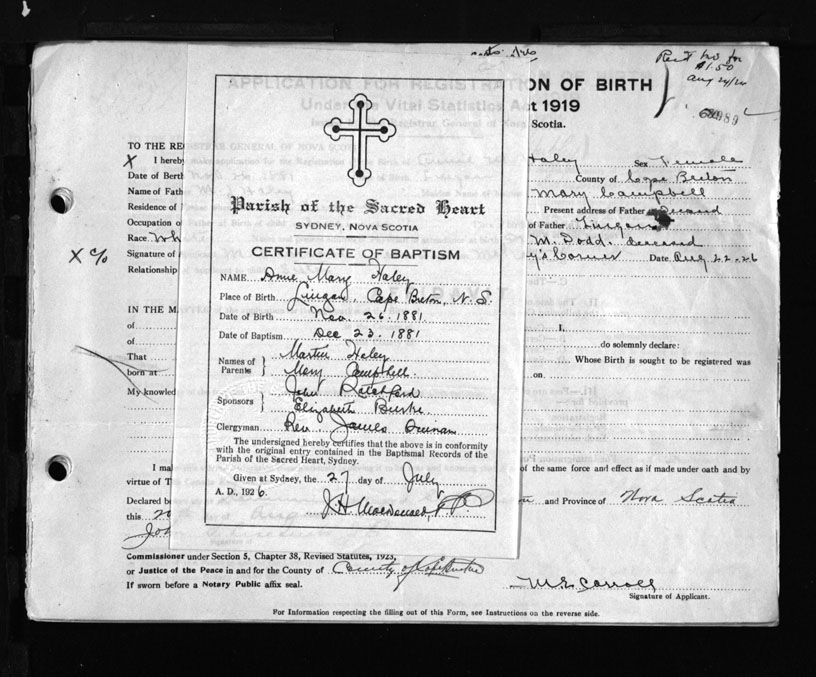 Rec'd
$1.50
Aug 24/26
APPLICATION FOR REGISTRATION OF BIRTH
Under the Vital Statistics Act 1919
Scotia.
TO THE RE
X I hereby
Haley Sex Female
Date of Birth
County of Cape Breton
Name of Fath
Mary Campbell
Residence of
Present address of Father
Occupation o
of Father Lingan
Race White
M. Dodd. deceased
X % Signature of
Corner Date Aug 22-26
Relationship
IN THE MA
of
I,
of
do solemnly declare:
That
Whose Birth is sought to be registered was
born at
on
My knowled
Parish of the Sacred Heart
SYDNEY, NOVA SCOTIA
CERTIFICATE OF BAPTISM
NAME Annie Mary Haley
Place of Birth Lingan, Cape Breton, N.S.
Date of Birth Nov. 26. 1881
Date of Baptism Dec 23. 1881
Names of Parents } Martin Haley
Mary Campbell
Sponsors } John Ratchford
Elizabeth Burke
Clergyman Rev James
The undersigned hereby certifies that the above is in conformity
with the original entry contained in the Baptismal Records of the
Parish of the Sacred Heart, Sydney.
Given at Sydney, the 27 day of July
A. D., 1926.
J H Macdonald, P.P.
I ma
of the same force and effect as if made under oath and by
virtue of
Declared b
and Province of Nova Scotia
this 20
Commissioner under Section 5, Chapter 38, Revised Statutes, 1923,
or Justice of the Peace in and for the County of County of Cape Breton
If sworn before a Notary Public affix seal.
M E Carroll
Signature of Applicant.
For Information respecting the filling out of this Form, see Instructions on the reverse side.